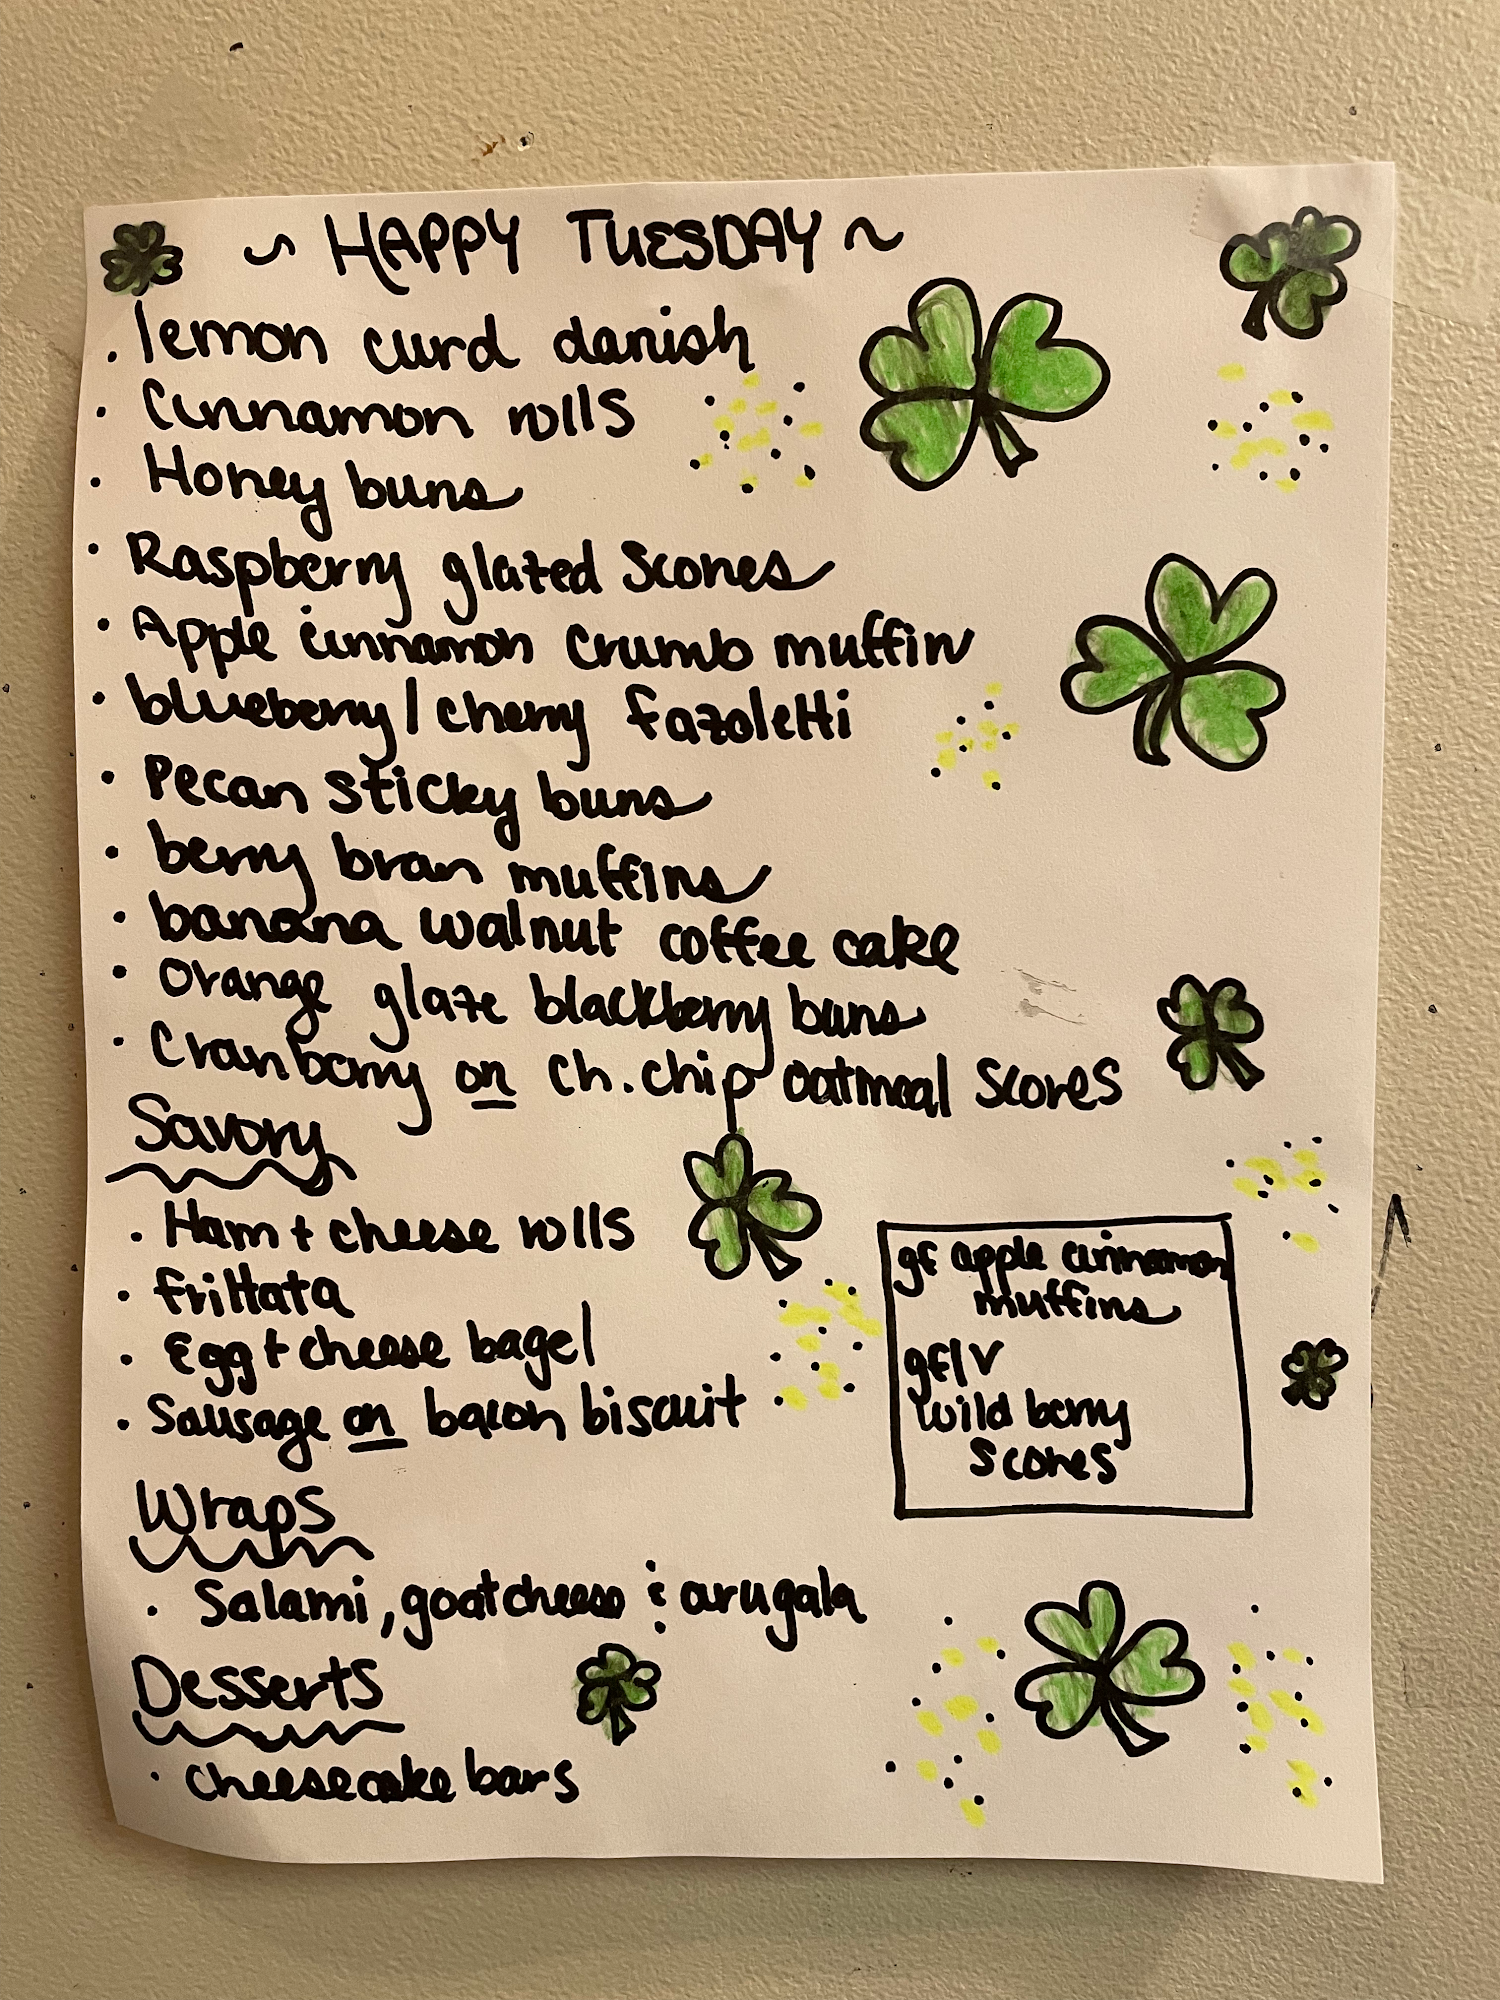 ~ HAPPY TUESDAY ~
• lemon curd danish
• Cinnamon rolls
• Honey buns
• Raspberry glazed Scones
• Apple cinnamon crumb muffin
• blueberry/cherry fazoletti
• Pecan sticky buns
• berry bran muffins
• banana walnut coffee cake
• Orange glaze blackberry buns
• Cranberry on ch.chip oatmeal scones
Savory
• Ham + cheese rolls
• frittata
• Egg + cheese bagel
• Sausage on bacon biscuit
gf apple cinnamon
muffins
gf/v
wild berry
scones
Wraps
• Salami, goat cheese & arugala
Desserts
• cheesecake bars